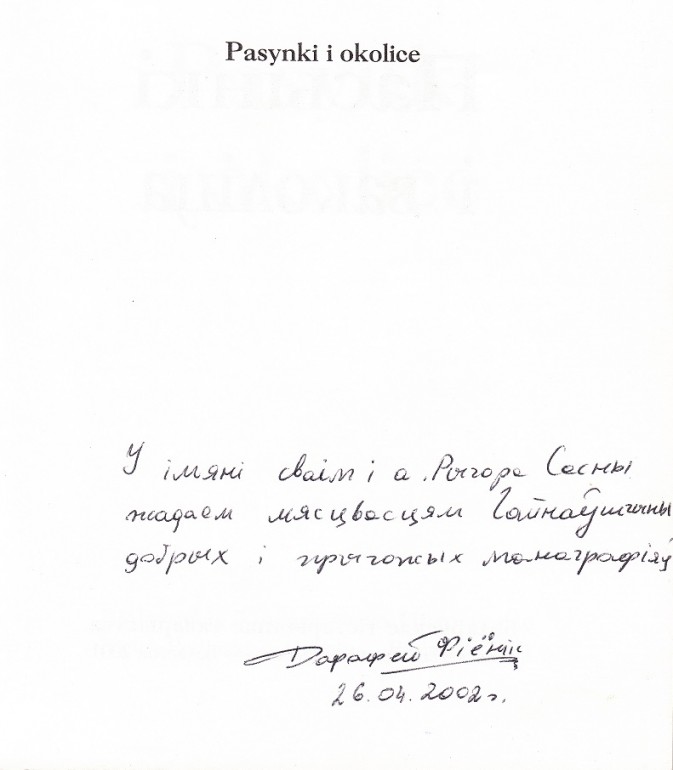 Pasynki i okolice
У імяні сваім і а. Рыгора Сосны
жадаем мясцвасцям Гайнаўшчыны
добрых і прыгожых манаграфіяў
Дарафей Фіёнік
26.04.2002г.